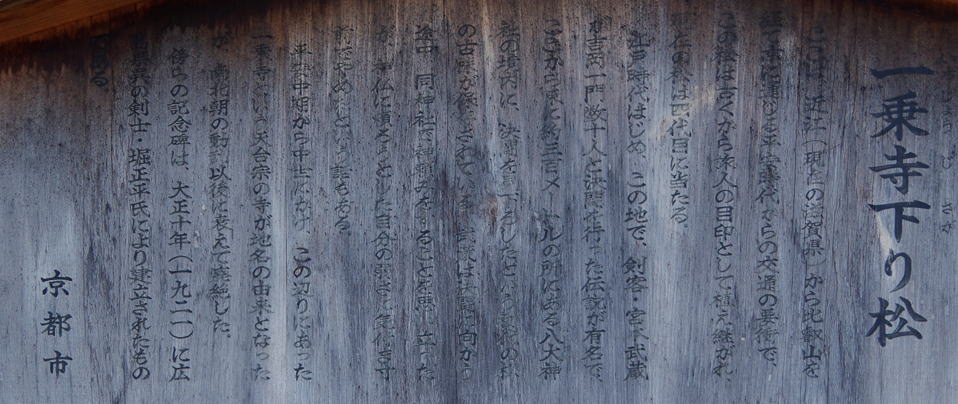 一乗寺下り松
ここは、近江(現在の滋賀県)から比叡山を
経て京に通じる平安時代からの交通の要衝で、
この松は古くから旅人の目印として植え継がれ、
現在の松は四代目に当たる。
江戸時代はじめ、この地で、剣客・宮本武蔵
が吉岡一門数十人と決闘を行った伝説が有名で、
ここから東に約三百メートルの所にある八大神
社の境内に、決闘を
の古木が保存されている。武蔵は決闘に向かう
途中、同神社で神頼みをすることを思い立った
が、神仏に頼ろうとした自分の弱さに気付き
前でやめたという話もある。
平安中期から中世にかけ、この辺りにあった
一乗寺という天台宗の寺が地名の由来となった
が、南北朝の動乱以後に衰えて廃絶した。
傍らの記念碑は、大正十年(一九二一)に広
の剣士・堀正平氏により建立されたもの
である。
京都市